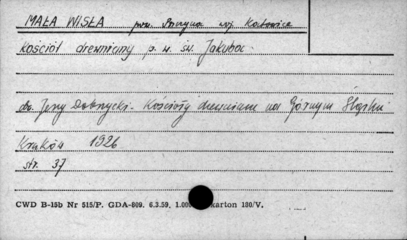 MAŁA WISŁA pow. Pszczyna woj. Katowice
kościół drewniany p. w. św. Jakuba
ds. Jerzy Dobrzycki. Kościoły drewniane na Górnym Śląsku
Kraków 1926
str. 37
CWD B-15b Nr 515/P. GDA-809. 6.3.59. 1.000 karton 180/V.